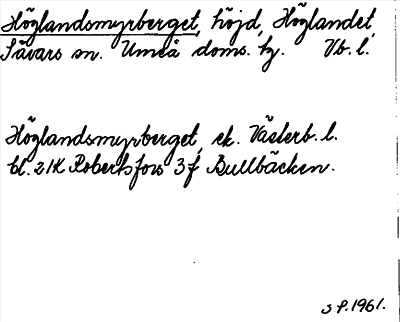 Höglandsmyrberget, höjd, Höglandet,
Sävars sn. Umeå doms. hg. Vb. l.
Höglandsmyrberget, ek. Västerb. l.
bl. 21K Robertsfors 3f Bullbäcken.
S.P. 1961.